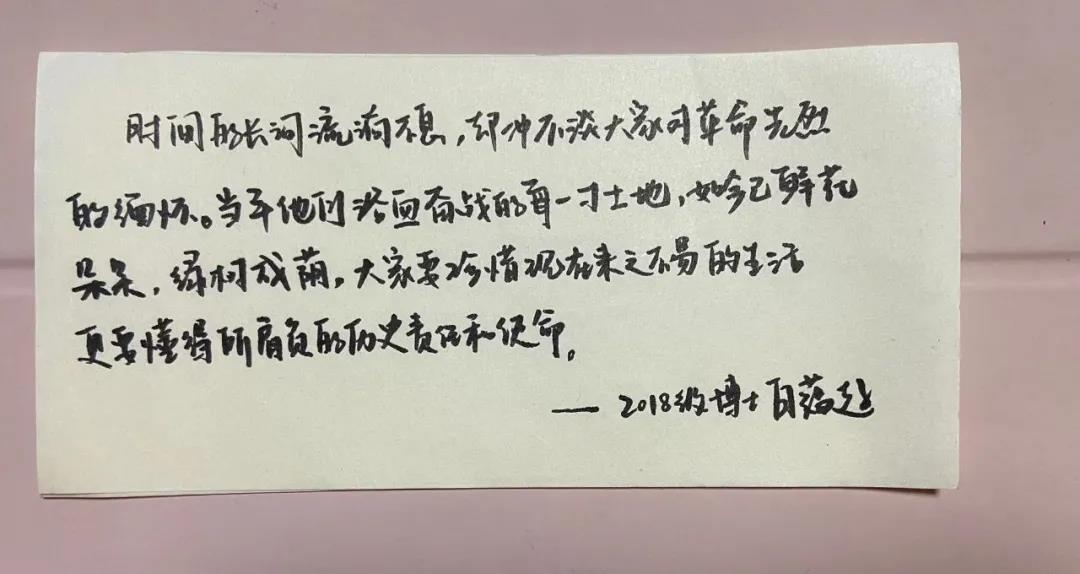 时间的长河流淌不息，却冲不淡大家对革命先烈
的缅怀。当年他们浴血奋战的每一寸土地，如今已鲜花
朵朵，绿树成荫，大家要珍惜现在来之不易的生活
更要懂得所肩负的历史责任和使命。
—— 2018级博士 白